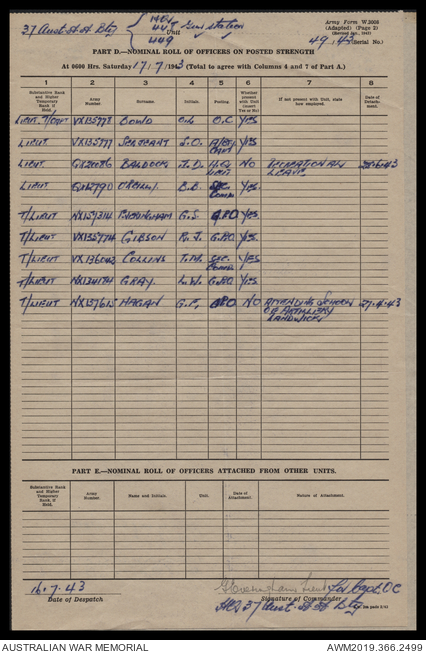 37 Aust A A Bty { 448 Gun Station
449
Unit
Army Form W.3008
(Adapted) (Page 2)
49/43 (Serial No.)
PART D.—NOMINAL ROLL OF OFFICERS ON POSTED STRENGTH
At 0600 Hrs. Saturday 17/7/1943 (Total to agree with Columns 4 and 7 of Part A.)
1 2 3 4 5 6 7 8
Substantive Rank and Higher Temporary Rank if Held. Army Number. Surname. Initials. Posting. Whether present with Unit (insert Yes or No) If not present with Unit, state how employed. Date of Detachment.
LIEUT T/CAPT VX135778 BOWD O.C YES
LIEUT VX135777 SERGEANT S.O. YES
LIEUT QX20086 BADDOCK J.D. NO RECREATIONAL LEAVE 28.6.43
LIEUT O'REILLY. B.B. SEC. COMD YES
T/LIEUT NX157314 G.S. GPO YES
T/LIEUT VX135774 GIBSON R.J. G.P.O. YES
T/LIEUT VX136042 COLLINS T.M. SEC. COMD YES
T/LIEUT NX134174 GRAY. L.W. G.P.O YES
T/LIEUT NX137615 HAGAN G.F. GPO NO ATTENDING SCHOOL OF ARTILLERY RANDWICK
PART E.—NOMINAL ROLL OF OFFICERS ATTACHED FROM OTHER UNITS.
Substantive Rank and Higher Temporary Rank if Held. Army Number. Name and Initials. Unit. Date of Attachment. Nature of Attachment.
16.7.43 Lieut for Capt OC
Date of Despatch Signature of Commander
HQ 37 Aust A A Bty
AUSTRALIAN WAR MEMORIAL AWM2019.366.2499